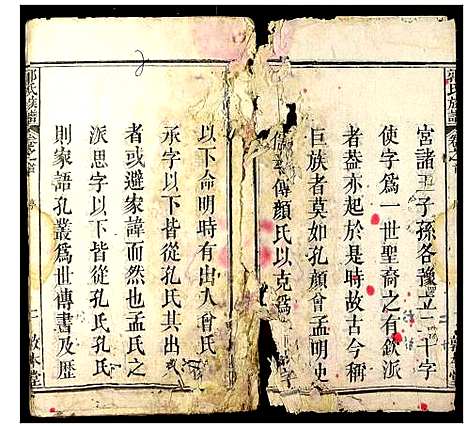 郭氏族譜
卷之首
宮諸王子孫各豫立二十字
使字爲一世聖裔之有欽派
者蓋亦起於是時故古今稱
巨族者莫如孔顏曾孟明史
傳顏氏以克爲
以下命明時有出入曾氏
承字以下皆從孔氏其出
者或避家諱而然也孟氏之
派思字以下皆從孔氏孔氏
則家語孔叢爲世傳書及歷
氏族譜
卷之首
敦本堂